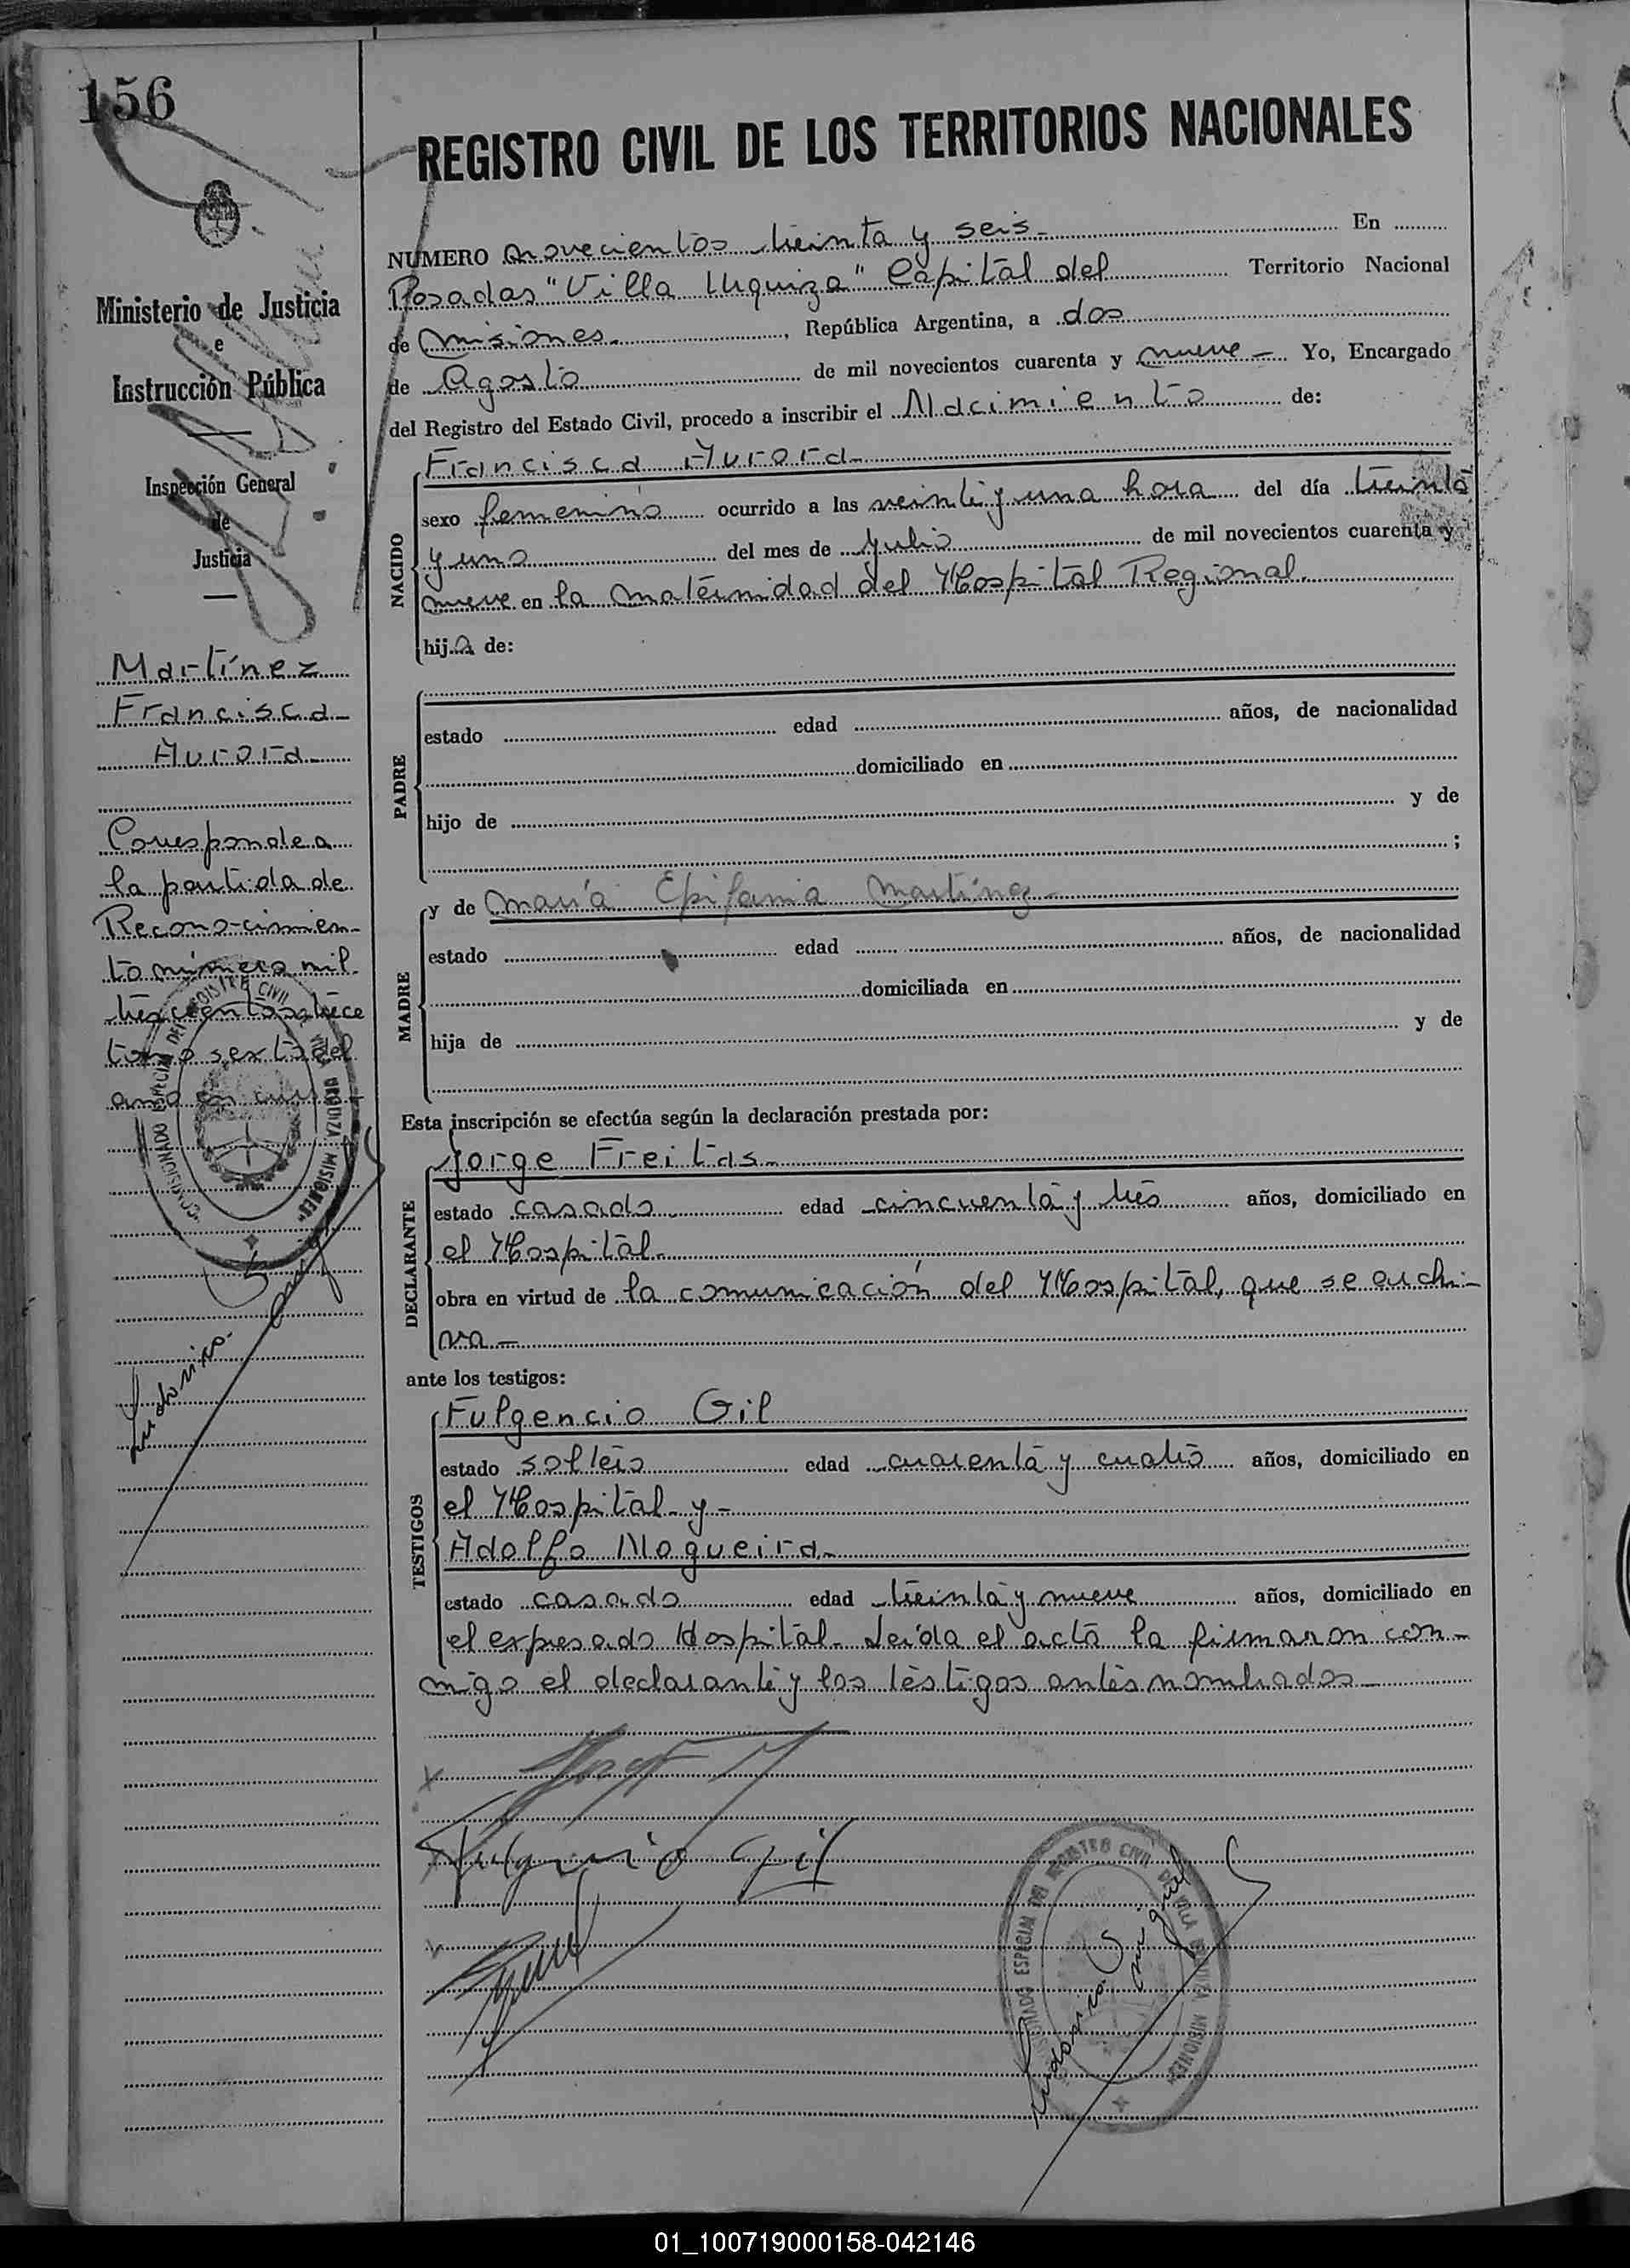 156
REGISTRO CIVIL DE LOS TERRITORIOS NACIONALES
Ministerio de Justicia
e
Instrucción Pública
Inspección General
de
Justicia
Martínez
Francisca
Aurora
Corresponde a
la partida de
Reconocimien-
to número mil
trescientos trece
tomo sexto del
año en curso
COMISIONADO ESPECIAL DEL REGISTRO CIVIL VILLA URQUIZA MISIONES
NUMERO novecientos treinta y seis - En
Posadas "Villa Urquiza" Capital del Territorio Nacional
de Misiones , República Argentina, a dos
de Agosto de mil novecientos cuarenta y nueve - Yo, Encargado
del Registro del Estado Civil, procedo a inscribir el Nacimiento de:
NACIDO
Francisca Aurora
sexo femenino ocurrido a las veinte y una hora del día treinta
y uno del mes de Julio de mil novecientos cuarenta y
nueve en la maternidad del Hospital Regional.
hija de:
PADRE
estado edad años, de nacionalidad
domiciliado en
hijo de y de
;
MADRE
y de María Epifania Martínez -
estado edad años, de nacionalidad
domiciliada en
hija de y de
Esta inscripción se efectúa según la declaración prestada por:
DECLARANTE
Jorge Freitas
estado casado edad cincuenta y tres años, domiciliado en
el Hospital.
obra en virtud de la comunicación del Hospital, que se archi-
va -
ante los testigos:
TESTIGOS
Fulgencio Gil
estado soltero edad cuarenta y cuatro años, domiciliado en
el Hospital y -
Adolfo Nogueira
estado casado edad treinta y nueve años, domiciliado en
el expresado Hospital. Leída el acta la firmaron con-
migo el declarante y los testigos antes nombrados -
Fulgencio Gil
COMISIONADO ESPECIAL DEL REGISTRO CIVIL DE VILLA URQUIZA MISIONES
01_100719000158-042146